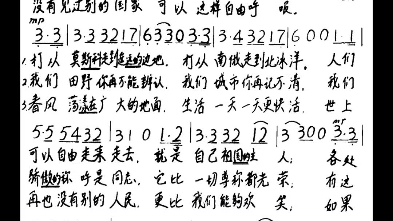 没有见过别的国家 可以 这样自由呼 吸。
mp
3·3 | 3·3 3 3 2 1 7 | 6 3 3 0 3·3 | 3·4 3 2 1 7 | 6 0 0 1·1 |
1.打从 莫斯科走到遥远的边地, 打从 南俄走到北冰洋。 人们
2.我们 田野 你再不能辨认, 我们 城市你再记不清, 我们
3.春风 荡漾在广大的地面, 生活 一天一天更快活, 世上
5·5 5 4 3 2 | 3 1 0 1·2 | 3·3 3 2 1 2 | 3 3 0 0 3·3 |
mf
可以自由走来走去, 就是 自己祖国的主 人; 各处
骄傲的称 呼是同志, 它比 一切尊称都光 荣, 有这
再也没有别的人民, 更比 我们能够欢 笑, 如果